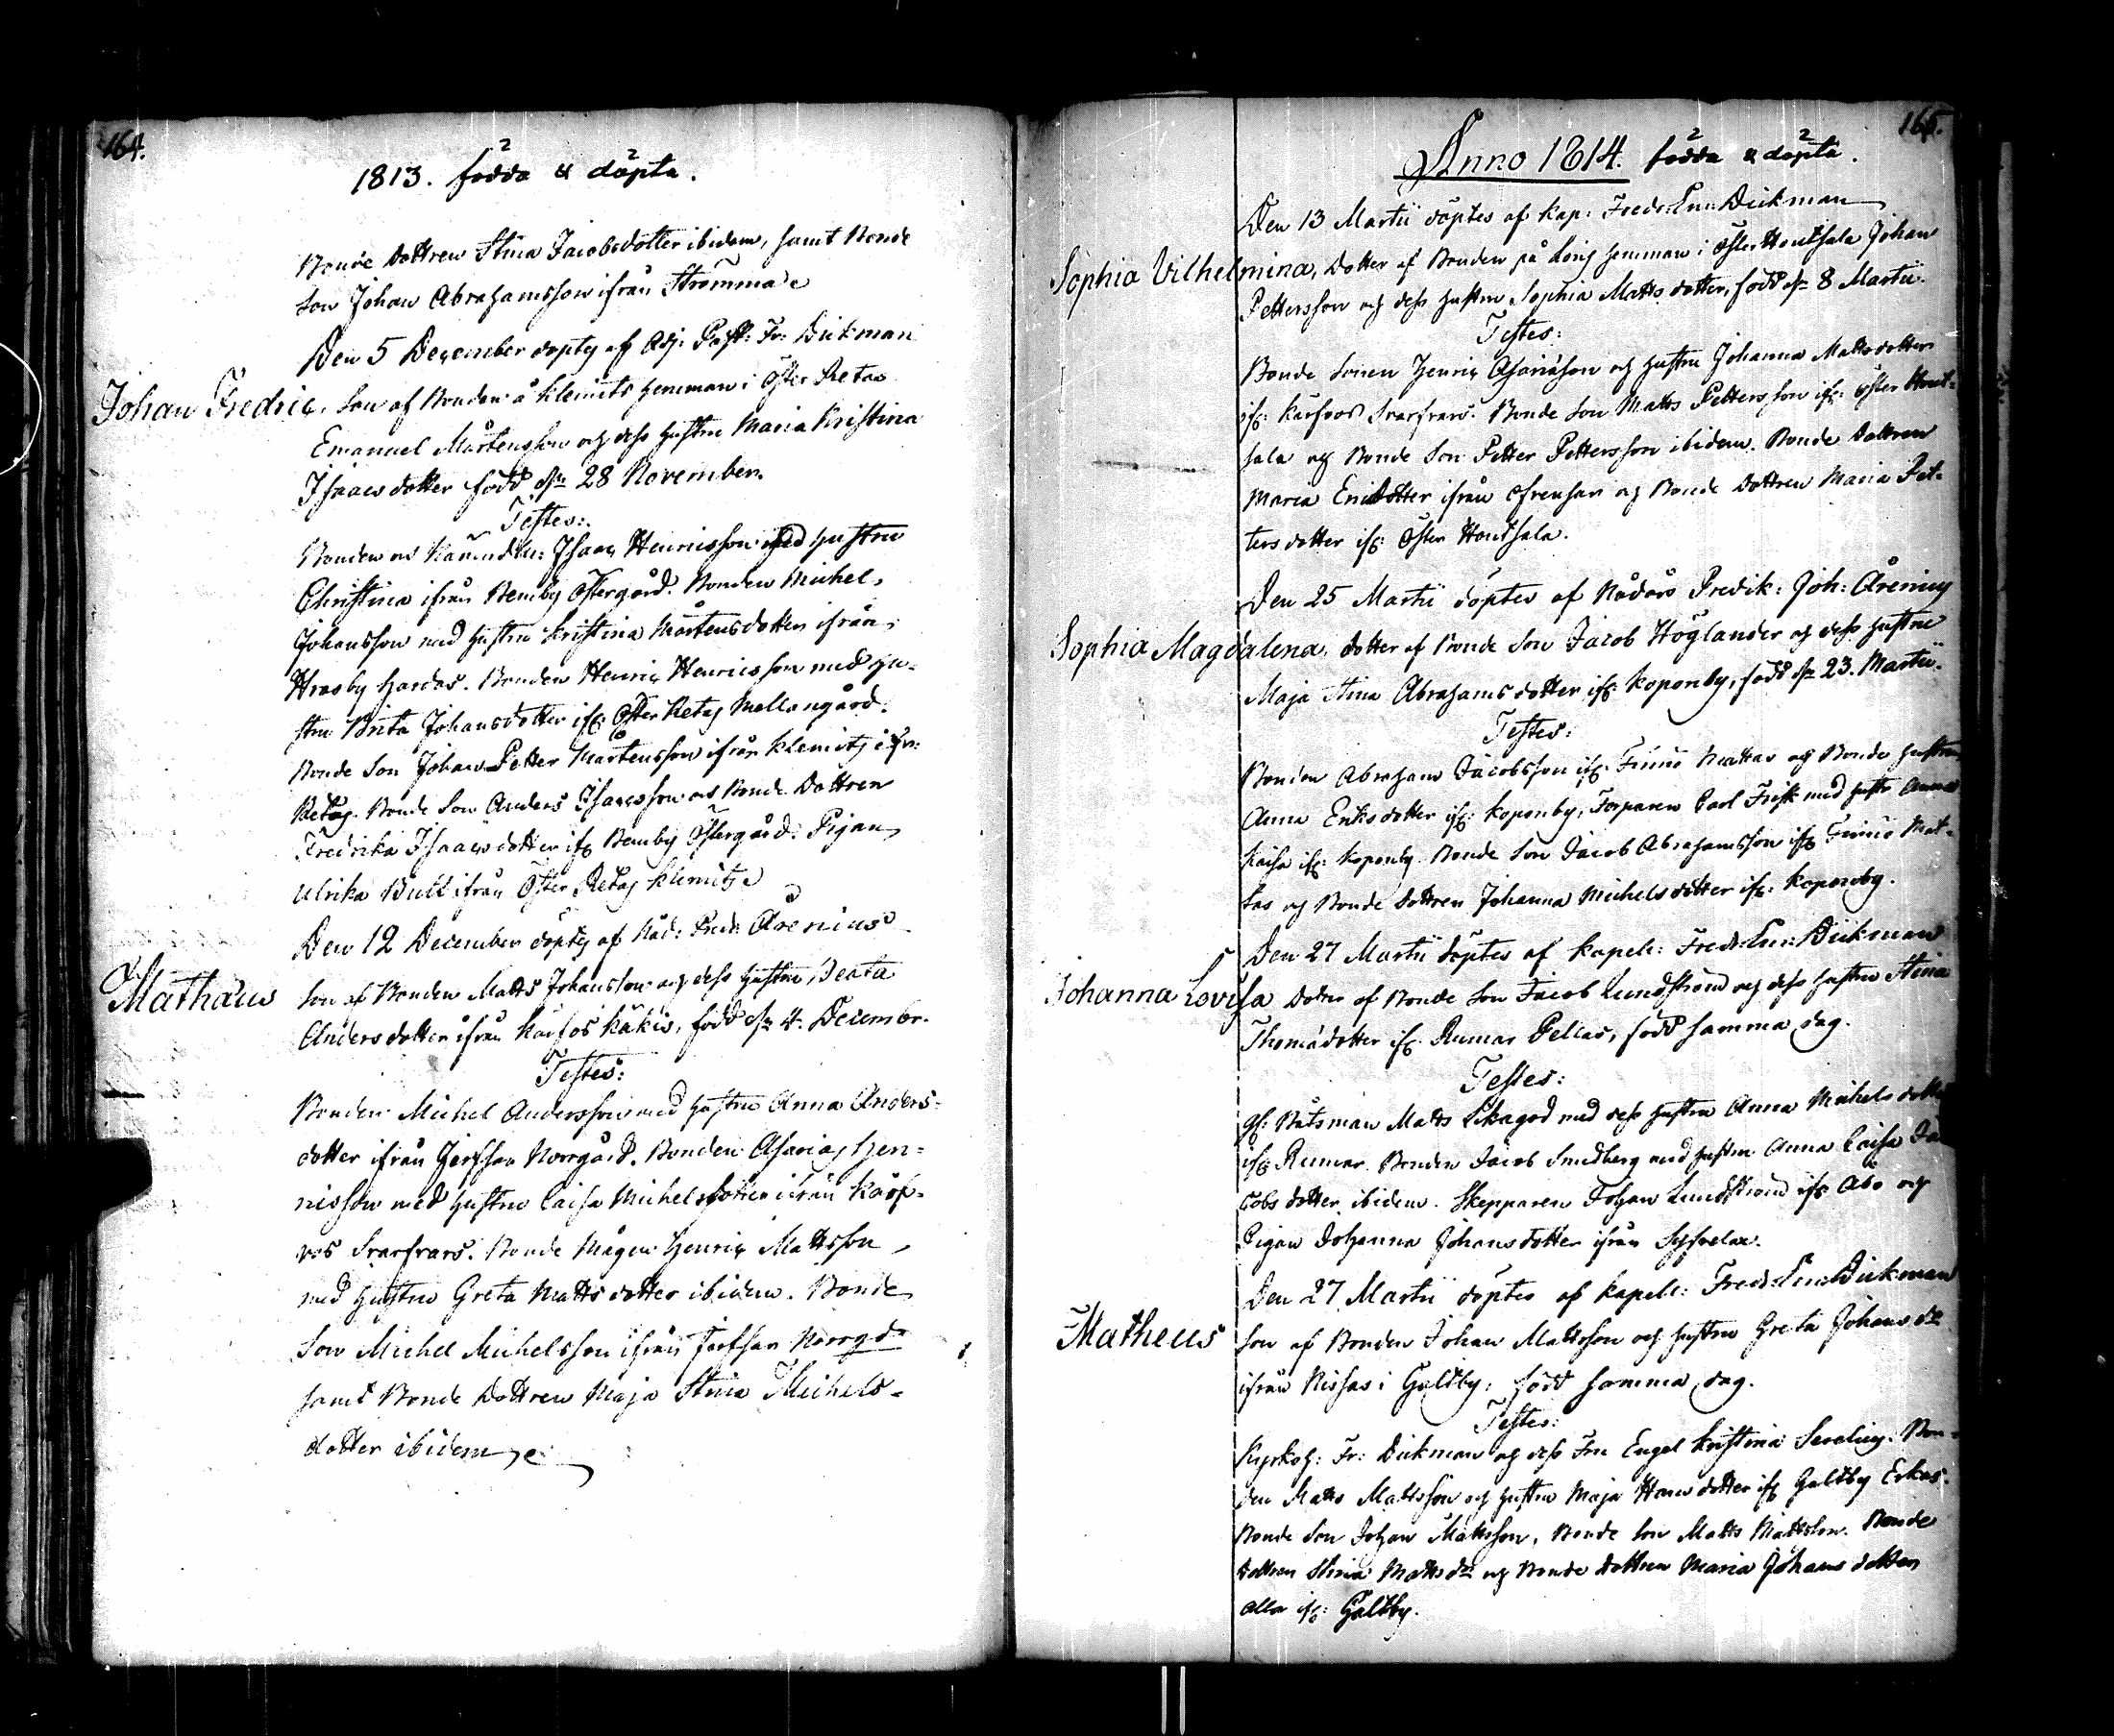 164.
1813. födda & döpta.
Bonde Dottren Stina Jacobsdotter ibidem, samt Bonde
Son Johan Abrahamsson ifrån Strömma
Den 5 December döptes af Adj: Past: Fr: Dickman
Johan Fredric, Son af Bonden å Klemets hemman i Öster Retais
Emanuel Mårtensson och dess hustru Maria Kristina
Isaacs dotter född d. 28 November.
Testes:
Bonden Isaac Henricsson med hustru
Christina ifrån Bemby Östergård. Bonden Michel
Johansson med hustru Kristina Mårtensdotter ifrån
Bonden Henric Henricsson med hu-
stru Brita Johansdotter ifr: Öster Retais Mellangård.
Bonde Son Johan Petter Mårtensson ifrån Klemets i Öster
Retais. Bonde Son Anders Isaacsson och Bonde Dottren
Fredrika Isaacs dotter ifr: Bemby Östergård. Pigan
Ulrika Bull ifrån Öster Retais Klemets
Den 12 December döptes af Nåd: Pred: Årenius
Mathæus Son af Bonden Matts Johansson och dess hustru Beata
Anders dotter ifrån Käkis, född d. 4. Decembr.
Testes:
Bonden Michel Andersson med hustru Anna Anders-
dotter ifrån Norrgård. Bonden Asarias Hen-
ricsson med hustru Caisa Michelsdotter ifrån Kärf-
vos Svarfvars. Bonde Mågen Henric Mattsson
med hustru Greta Matts dotter ibidem. Bonde
Son Michel Michelsson ifrån Norrgd
samt Bonde Dottren Maja Stina Michels-
dotter ibidem
165.
Anno 1814. födda & döpta.
Den 13 Martii döptes af Kap: Fredr: Em: Dickman
Sophia Vilhelmina, Dotter af Bonden på hemman i Öster Hontsala Johan
Pettersson och dess hustru Sophia Matts dotter, född d. 8 Martii.
Testes:
Bonde Sonen Henric Asariæson och hustru Johanna Mattsdotter
ifr: Kärfvos Svarfvars. Bonde Son Matts Pettersson ifr: Öster Hont-
sala och Bonde Son Petter Pettersson ibidem. Bonde Dottren
Maria Ericsdotter ifrån och Bonde Dottren Maria Pet-
ters dotter ifr: Öster Hontsala.
Den 25 Martii döptes af Nådårs Predik: Joh: Årenius
Sophia Magdalena, dotter af Bonde Son Jacob Höglander och dess hustru
Maja Stina Abrahams dotter ifr: Koponby, född d. 23. Martii.
Testes:
Bonden Abraham Jacobsson ifr: Finnö Mattas och Bonde hustrun
Anna Eriks dotter ifr: Koponby, Torparen Carl Frisk med hustr: Anna
Kaisa ifr: Koponby. Bonde Son Jacob Abrahamsson ifr: Finnö Mat-
tas och Bonde Dottren Johanna Michelsdotter ifr: Koponby.
Den 27 Martii döptes af Kapell: Fredr: Em: Dickman
Johanna Lovisa Dotter af Bonde Son Jacob Lundström och dess hustru Stina
Thomædotter ifr: Rumar Pellas, född samma dag.
Testes:
Båtsman Matts Skagod med dess hustru Anna Michels dotter
ifr: Rumar. Bonden Jacob Sundberg med hustru Anna Caisa Ja-
cobs dotter ibidem. Skepparen Johan Lundström ifr: Åbo och
Pigan Johanna Johans dotter ifrån
Den 27 Martii döptes af Kapell: Fredr: Em: Dickman
Matheus Son af Bonden Johan Mattsson och hustru Greta Johans dr
ifrån Nissas i Galtby, född samma dag.
Testes:
Kyrkoh: Fr: Dickman och dess Fru Engel Kristina Serelius. Bon-
den Matts Mattsson och hustru Maja Hans dotter ifr: Galtby Erkas.
Bonde Son Johan Mattsson, Bonde Son Matts Mattsson. Bonde
Dottren Stina Matts dr och Bonde Dottren Maria Johans dotter
alla ifr: Galtby.